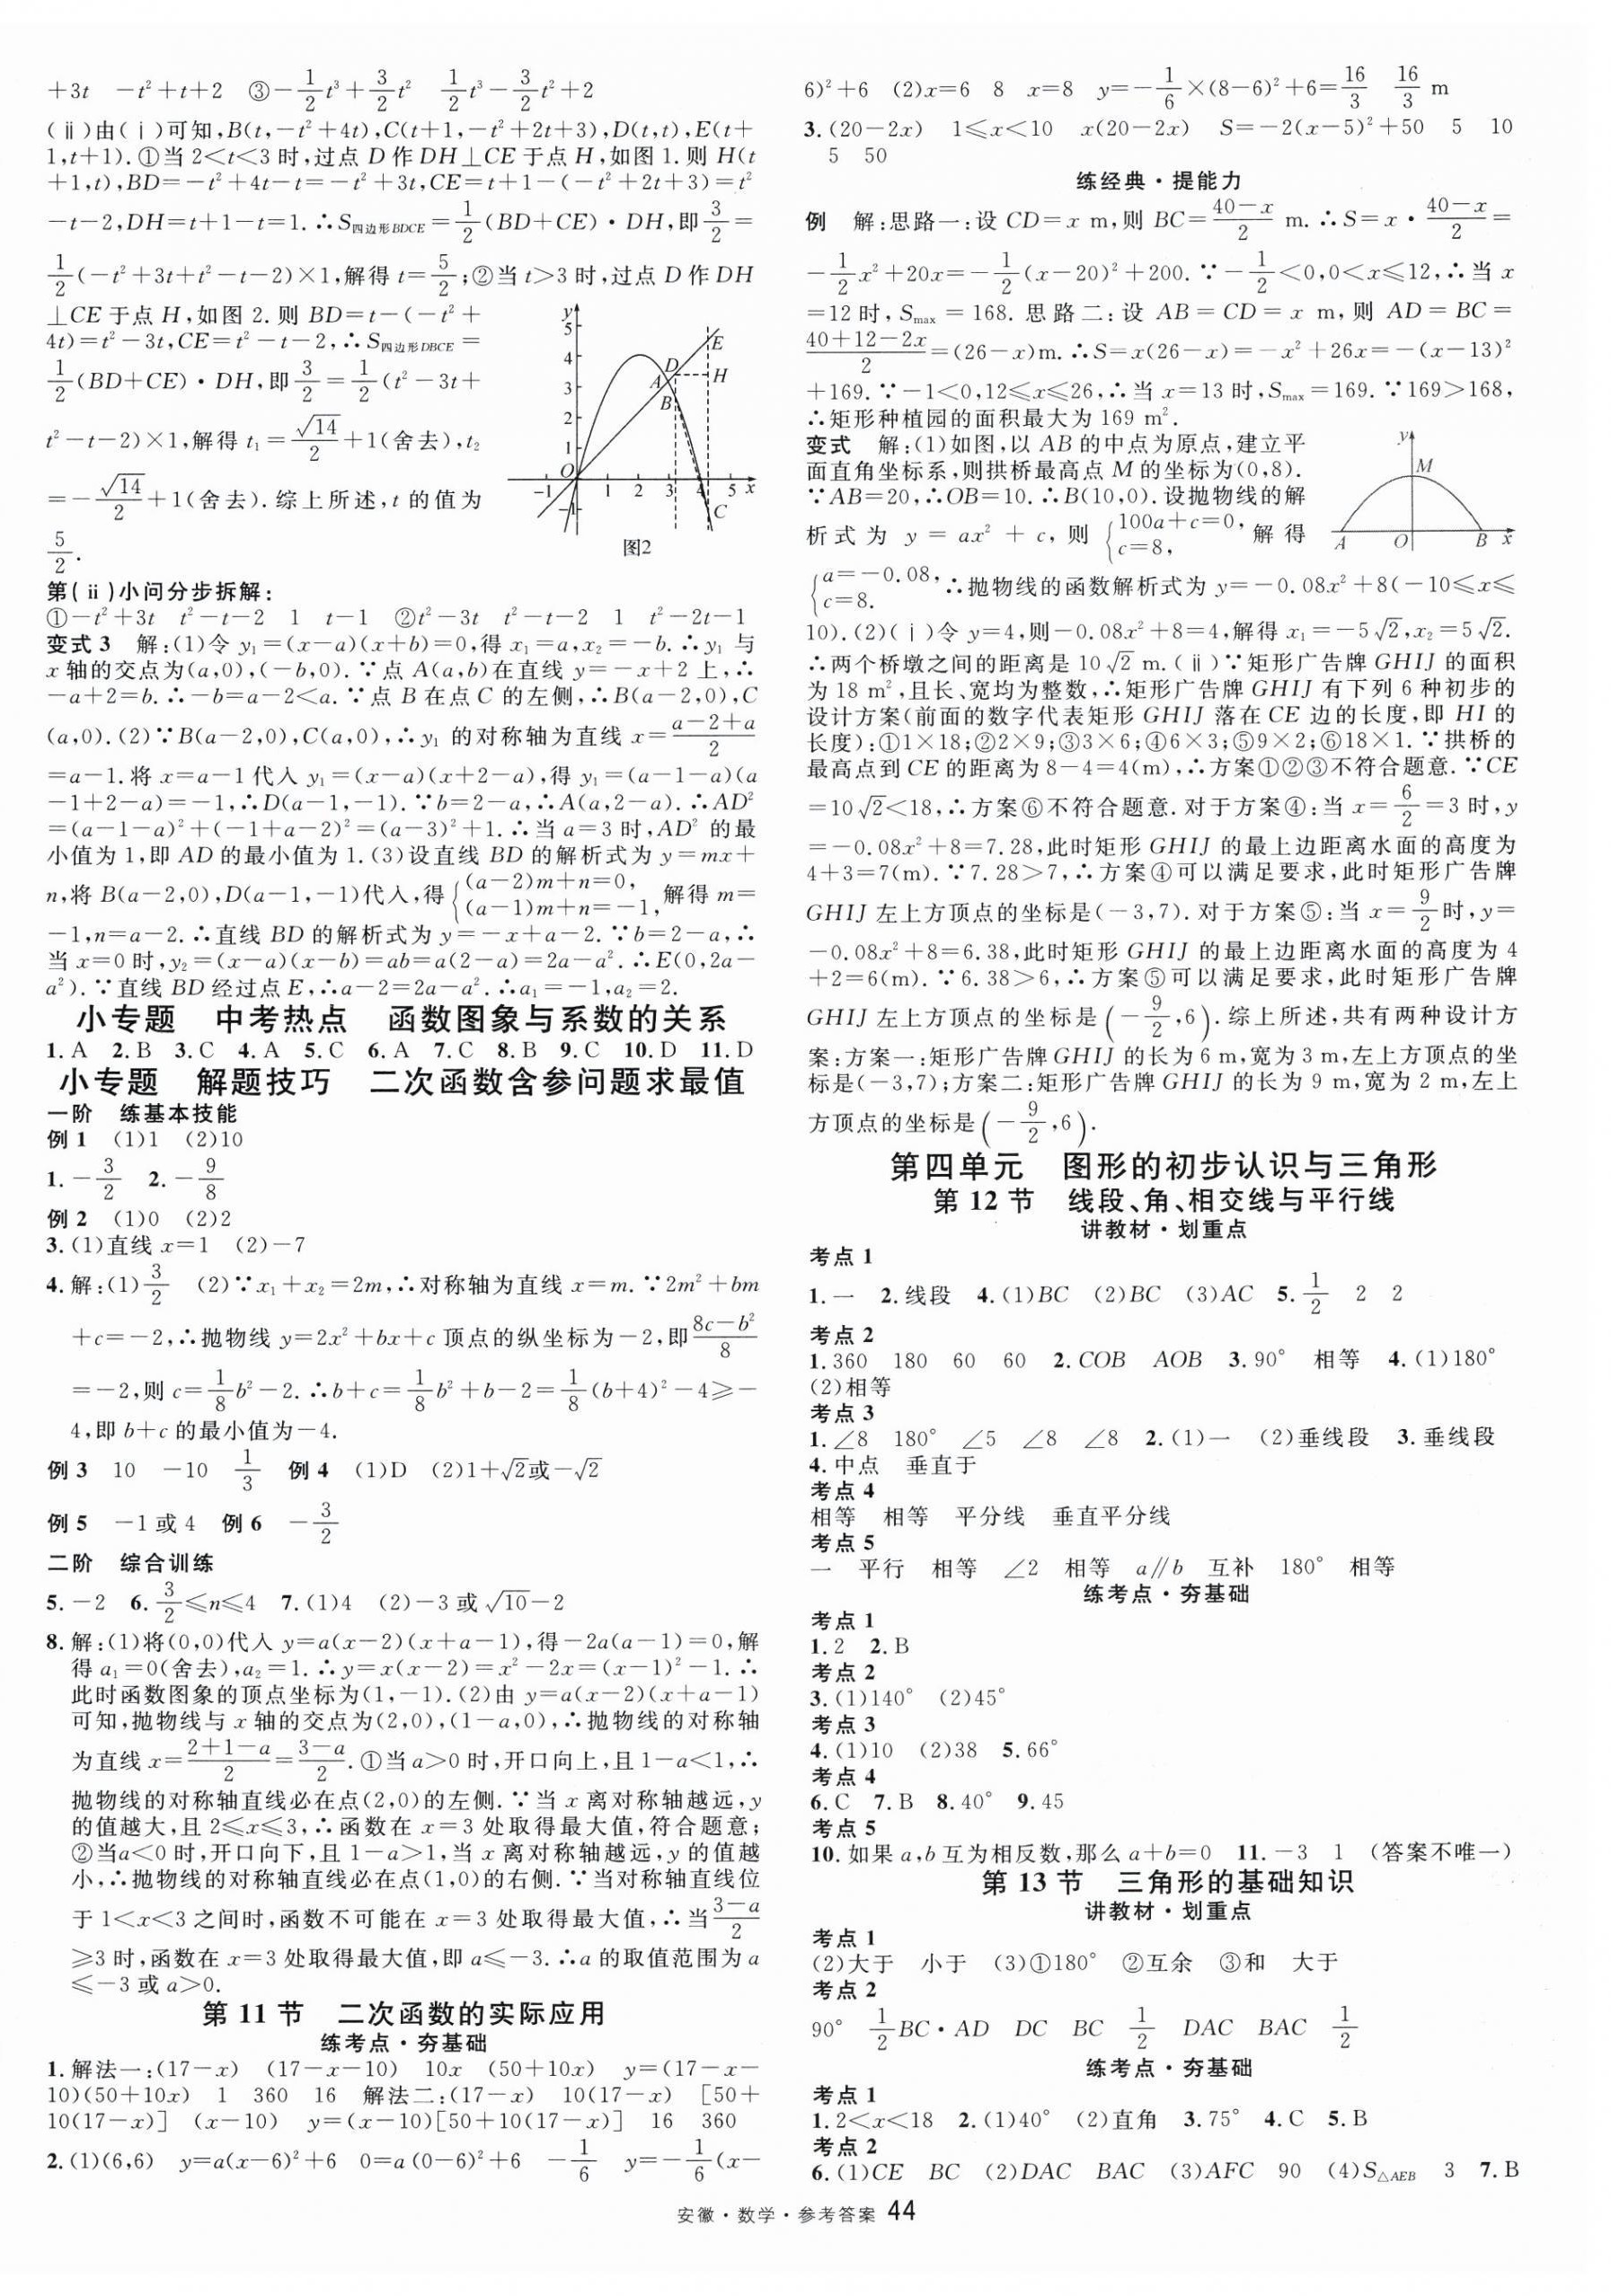 +3t　-t²+t+2　③-1/2t³+3/2t²　1/2t³-3/2t²+2
(ⅱ)由(ⅰ)可知,B(t,-t²+4t),C(t+1,-t²+2t+3),D(t,t),E(t+
1,t+1).①当2<t<3时,过点D作DH⊥CE于点H,如图1.则H(t
+1,t),BD=-t²+4t-t=-t²+3t,CE=t+1-(-t²+2t+3)=t²
-t-2,DH=t+1-t=1.∴S四边形BDCE=1/2(BD+CE)·DH,即3/2=
1/2(-t²+3t+t²-t-2)×1,解得t=5/2;②当t>3时,过点D作DH
⊥CE于点H,如图2.则BD=t-(-t²+
4t)=t²-3t,CE=t²-t-2,∴S四边形DBCE=
1/2(BD+CE)·DH,即3/2=1/2(t²-3t+
t²-t-2)×1,解得t₁=√14/2+1(舍去),t₂
=-√14/2+1(舍去).综上所述,t的值为
5/2.
y 5 4 3 2 1 O -1 1 2 3 4 5 x -1 A B C D E H
图2
第(ⅱ)小问分步拆解:
①-t²+3t　t²-t-2　1　t-1　②t²-3t　t²-t-2　1　t²-2t-1
变式3　解:(1)令y₁=(x-a)(x+b)=0,得x₁=a,x₂=-b.∴y₁与
x轴的交点为(a,0),(-b,0).∵点A(a,b)在直线y=-x+2上,∴
-a+2=b.∴-b=a-2<a.∵点B在点C的左侧,∴B(a-2,0),C
(a,0).(2)∵B(a-2,0),C(a,0),∴y₁的对称轴为直线x=(a-2+a)/2
=a-1.将x=a-1代入y₁=(x-a)(x+2-a),得y₁=(a-1-a)(a
-1+2-a)=-1,∴D(a-1,-1).∵b=2-a,∴A(a,2-a).∴AD²
=(a-1-a)²+(-1+a-2)²=(a-3)²+1.∴当a=3时,AD²的最
小值为1,即AD的最小值为1.(3)设直线BD的解析式为y=mx+
n,将B(a-2,0),D(a-1,-1)代入,得{(a-2)m+n=0,(a-1)m+n=-1,解得m=
-1,n=a-2.∴直线BD的解析式为y=-x+a-2.∵b=2-a,∴
当x=0时,y₂=(x-a)(x-b)=ab=a(2-a)=2a-a².∴E(0,2a-
a²).∵直线BD经过点E,∴a-2=2a-a².∴a₁=-1,a₂=2.
小专题　中考热点　函数图象与系数的关系
1.A　2.B　3.C　4.A　5.C　6.A　7.C　8.B　9.C　10.D　11.D
小专题　解题技巧　二次函数含参问题求最值
一阶　练基本技能
例1　(1)1　(2)10
1.-3/2　2.-9/8
例2　(1)0　(2)2
3.(1)直线x=1　(2)-7
4.解:(1)3/2　(2)∵x₁+x₂=2m,∴对称轴为直线x=m.∵2m²+bm
+c=-2,∴抛物线y=2x²+bx+c顶点的纵坐标为-2,即(8c-b²)/8
=-2,则c=1/8b²-2.∴b+c=1/8b²+b-2=1/8(b+4)²-4≥-
4,即b+c的最小值为-4.
例3　10　-10　1/3　例4　(1)D　(2)1+√2或-√2
例5　-1或4　例6　-3/2
二阶　综合训练
5.-2　6.3/2≤n≤4　7.(1)4　(2)-3或√10-2
8.解:(1)将(0,0)代入y=a(x-2)(x+a-1),得-2a(a-1)=0,解
得a₁=0(舍去),a₂=1.∴y=x(x-2)=x²-2x=(x-1)²-1.∴
此时函数图象的顶点坐标为(1,-1).(2)由y=a(x-2)(x+a-1)
可知,抛物线与x轴的交点为(2,0),(1-a,0),∴抛物线的对称轴
为直线x=(2+1-a)/2=(3-a)/2.①当a>0时,开口向上,且1-a<1,∴
抛物线的对称轴直线必在点(2,0)的左侧.∵当x离对称轴越远,y
的值越大,且2≤x≤3,∴函数在x=3处取得最大值,符合题意;
②当a<0时,开口向下,且1-a>1,当x离对称轴越远,y的值越
小,∴抛物线的对称轴直线必在点(1,0)的右侧.∵当对称轴直线位
于1<x<3之间时,函数不可能在x=3处取得最大值,∴当(3-a)/2
≥3时,函数在x=3处取得最大值,即a≤-3.∴a的取值范围为a
≤-3或a>0.
第11节　二次函数的实际应用
练考点·夯基础
1.解法一:(17-x)　(17-x-10)　10x　(50+10x)　y=(17-x-
10)(50+10x)　1　360　16　解法二:(17-x)　10(17-x)　[50+
10(17-x)]　(x-10)　y=(x-10)[50+10(17-x)]　16　360
2.(1)(6,6)　y=a(x-6)²+6　0=a(0-6)²+6　-1/6　y=-1/6(x-
6)²+6　(2)x=6　8　x=8　y=-1/6×(8-6)²+6=16/3　16/3 m
3.(20-2x)　1≤x<10　x(20-2x)　S=-2(x-5)²+50　5　10
5　50
练经典·提能力
例　解:思路一:设CD=x m,则BC=(40-x)/2 m.∴S=x·(40-x)/2=
-1/2x²+20x=-1/2(x-20)²+200.∵-1/2<0,0<x≤12,∴当x
=12时,Smax=168.思路二:设AB=CD=x m,则AD=BC=
(40+12-2x)/2=(26-x)m.∴S=x(26-x)=-x²+26x=-(x-13)²
+169.∵-1<0,12≤x≤26,∴当x=13时,Smax=169.∵169>168,
∴矩形种植园的面积最大为169 m².
变式　解:(1)如图,以AB的中点为原点,建立平
面直角坐标系,则拱桥最高点M的坐标为(0,8).
∵AB=20,∴OB=10.∴B(10,0).设抛物线的解
析式为y=ax²+c,则{100a+c=0,c=8,解得
y M A O B x
{a=-0.08,c=8.∴抛物线的函数解析式为y=-0.08x²+8(-10≤x≤
10).(2)(ⅰ)令y=4,则-0.08x²+8=4,解得x₁=-5√2,x₂=5√2.
∴两个桥墩之间的距离是10√2 m.(ⅱ)∵矩形广告牌GHIJ的面积
为18 m²,且长、宽均为整数,∴矩形广告牌GHIJ有下列6种初步的
设计方案(前面的数字代表矩形GHIJ落在CE边的长度,即HI的
长度):①1×18;②2×9;③3×6;④6×3;⑤9×2;⑥18×1.∵拱桥的
最高点到CE的距离为8-4=4(m),∴方案①②③不符合题意.∵CE
=10√2<18,∴方案⑥不符合题意.对于方案④:当x=6/2=3时,y
=-0.08x²+8=7.28,此时矩形GHIJ的最上边距离水面的高度为
4+3=7(m).∵7.28>7,∴方案④可以满足要求,此时矩形广告牌
GHIJ左上方顶点的坐标是(-3,7).对于方案⑤:当x=9/2时,y=
-0.08x²+8=6.38,此时矩形GHIJ的最上边距离水面的高度为4
+2=6(m).∵6.38>6,∴方案⑤可以满足要求,此时矩形广告牌
GHIJ左上方顶点的坐标是(-9/2,6).综上所述,共有两种设计方
案:方案一:矩形广告牌GHIJ的长为6 m,宽为3 m,左上方顶点的坐
标是(-3,7);方案二:矩形广告牌GHIJ的长为9 m,宽为2 m,左上
方顶点的坐标是(-9/2,6).
第四单元　图形的初步认识与三角形
第12节　线段、角、相交线与平行线
讲教材·划重点
考点1
1.一　2.线段　4.(1)BC　(2)BC　(3)AC　5.1/2　2　2
考点2
1.360　180　60　60　2.COB　AOB　3.90°　相等　4.(1)180°
(2)相等
考点3
1.∠8　180°　∠5　∠8　∠8　2.(1)一　(2)垂线段　3.垂线段
4.中点　垂直于
考点4
相等　相等　平分线　垂直平分线
考点5
一　平行　相等　∠2　相等　a∥b　互补　180°　相等
练考点·夯基础
考点1
1.2　2.B
考点2
3.(1)140°　(2)45°
考点3
4.(1)10　(2)38　5.66°
考点4
6.C　7.B　8.40°　9.45
考点5
10.如果a,b互为相反数,那么a+b=0　11.-3　1　(答案不唯一)
第13节　三角形的基础知识
讲教材·划重点
考点1
(2)大于　小于　(3)①180°　②互余　③和　大于
考点2
90°　1/2BC·AD　DC　BC　1/2　DAC　BAC　1/2
练考点·夯基础
考点1
1.2<x<18　2.(1)40°　(2)直角　3.75°　4.C　5.B
考点2
6.(1)CE　BC　(2)DAC　BAC　(3)AFC　90　(4)S△AEB　3　7.B
安徽·数学·参考答案 44